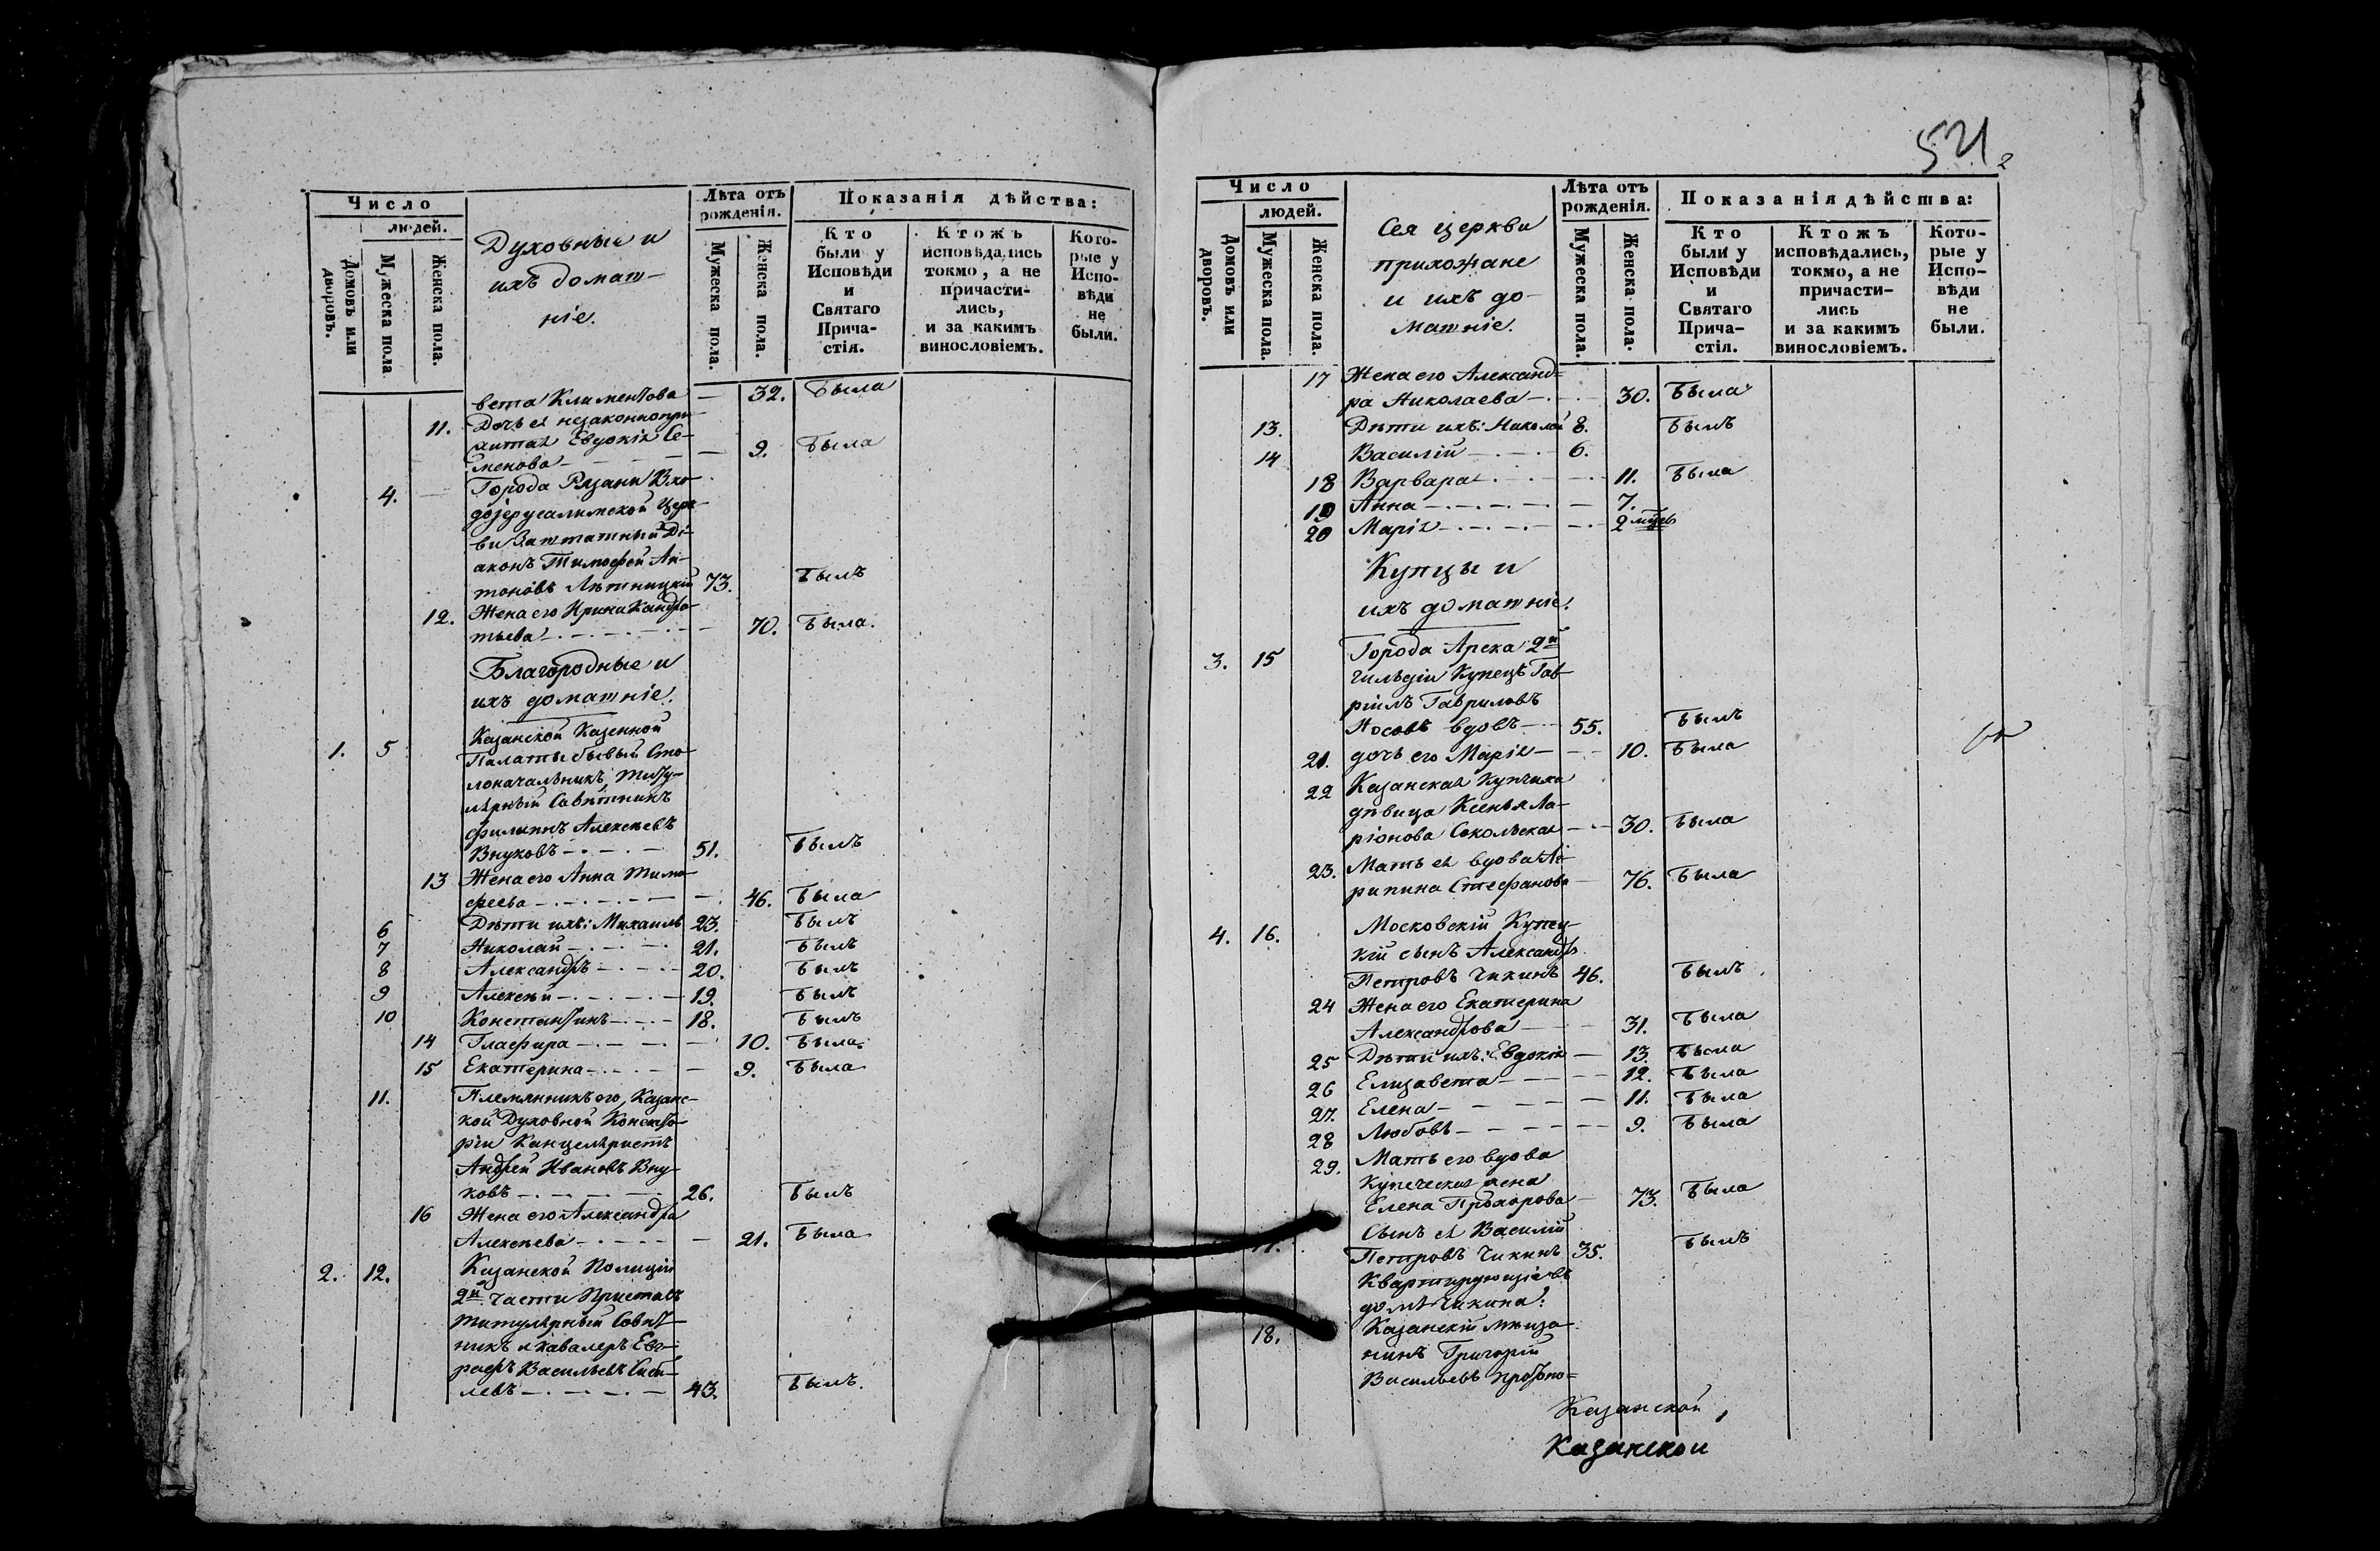 Число
людей.
Домовъ или дворовъ.
Мужеска пола
Женска пола.
Духовные и
ихъ домаш-
ніе.
Лѣта отъ
рожденія.
Мужеска пола.
Женска пола.
Показанія дѣйства:
Кто
были у
Исповѣди
и
Святаго
Прича-
стія.
Ктожъ
исповѣдались
токмо, а не
причасти-
лись,
и за какимъ
винословіемъ.
Кото-
рые у
Испо-
вѣди
не
были.
вета Климентова — 32. Была
11. Дочь ея незаконнопри-
житая Евдокія Се-
менова — 9. Была
4. Города Рязани Вхо-
доіерусалимской Церк-
ви Заштатный Ді-
аконъ Тимофей Ан-
тоновъ Лѣтницкій 73. Былъ
12. Жена его Ирина Кандра-
тьева — 70. Была.
Благородные и
ихъ домашніе.
1. 5 Казанской Казенной
Палаты бывый Сто-
лоначальникъ, Титу-
лярный Совѣтникъ
Филиппъ Алексѣевъ
Внуковъ — 51. Былъ
13 Жена его Анна Тимо-
феева — 46. Была
6 Дѣти ихъ: Михаилъ 23. Былъ
7 Николай — 21. Былъ
8 Александръ — 20. Былъ
9 Алексѣй — 19. Былъ
10 Константинъ — 18. Былъ
14 Глафира — 10. Была.
15 Екатерина — 9. Была
11. Племянникъ его, Казанс-
кой Духовной Консисто-
ріи Канцеляристъ
Андрей Ивановъ Вну-
ковъ — 26. Былъ
16 Жена его Александра
Алексѣева — 21. Была
2. 12. Казанской Полиціи
2й части Приставъ
Титулярный Совѣт-
никъ и кавалеръ Евг-
рафъ Васильевъ
левъ — 43. Былъ.
521
2
Число
людей.
Домовъ или дворовъ.
Мужеска пола.
Женска пола.
Сея церкви
прихожане
и ихъ до-
машніе.
Лѣта отъ
рожденія.
Мужеска пола.
Женска пола.
Показанія дѣйства:
Кто
были у
Исповѣди
и
Святаго
Прича-
стія.
Ктожъ
исповѣдались,
токмо, а не
причасти-
лись
и за какимъ
винословіемъ.
Кото-
рые у
Испо-
вѣди
не
были.
17 Жена его Александ=
ра Николаева — 30. Была
13. Дѣти ихъ: Николай 8. Былъ
14 Василій — 6.
18 Варвара — 11. Была
19 Анна — 7.
20 Марія — 2 мцъ
Купцы и
ихъ домашніе.
3. 15 Города Арска 2й
гильдіи Купецъ Гав-
ріилъ Гавриловъ
Носовъ вдовъ — 55. Былъ
21. дочь его Марія — 10. Была
22 Казанская Купчиха
дѣвица Ксенья Ла-
ріонова Сокольская — 30. Была
23. Мать ея вдова Аг-
рипина Стефанова 76. Была
4. 16. Московскій Купец-
кій сынъ Александръ
Петровъ Чикинъ 46. Былъ
24 Жена его Екатерина
Александрова — 31. Была
25 Дѣти ихъ: Евдокія — 13. Была
26 Елизавета — 12. Была
27. Елена — 11. Была
28 Любовь — 9. Была
29. Мать его вдова
Купеческая жена
Елена Прохорова — 73. Была
17. Сынъ ея Василій
Петровъ Чикинъ 35. Былъ
Квартирующіе въ
домѣ Чикина:
18. Казанскій мѣща-
нинъ Григорій
Васильевъ
Казанской
Казанской